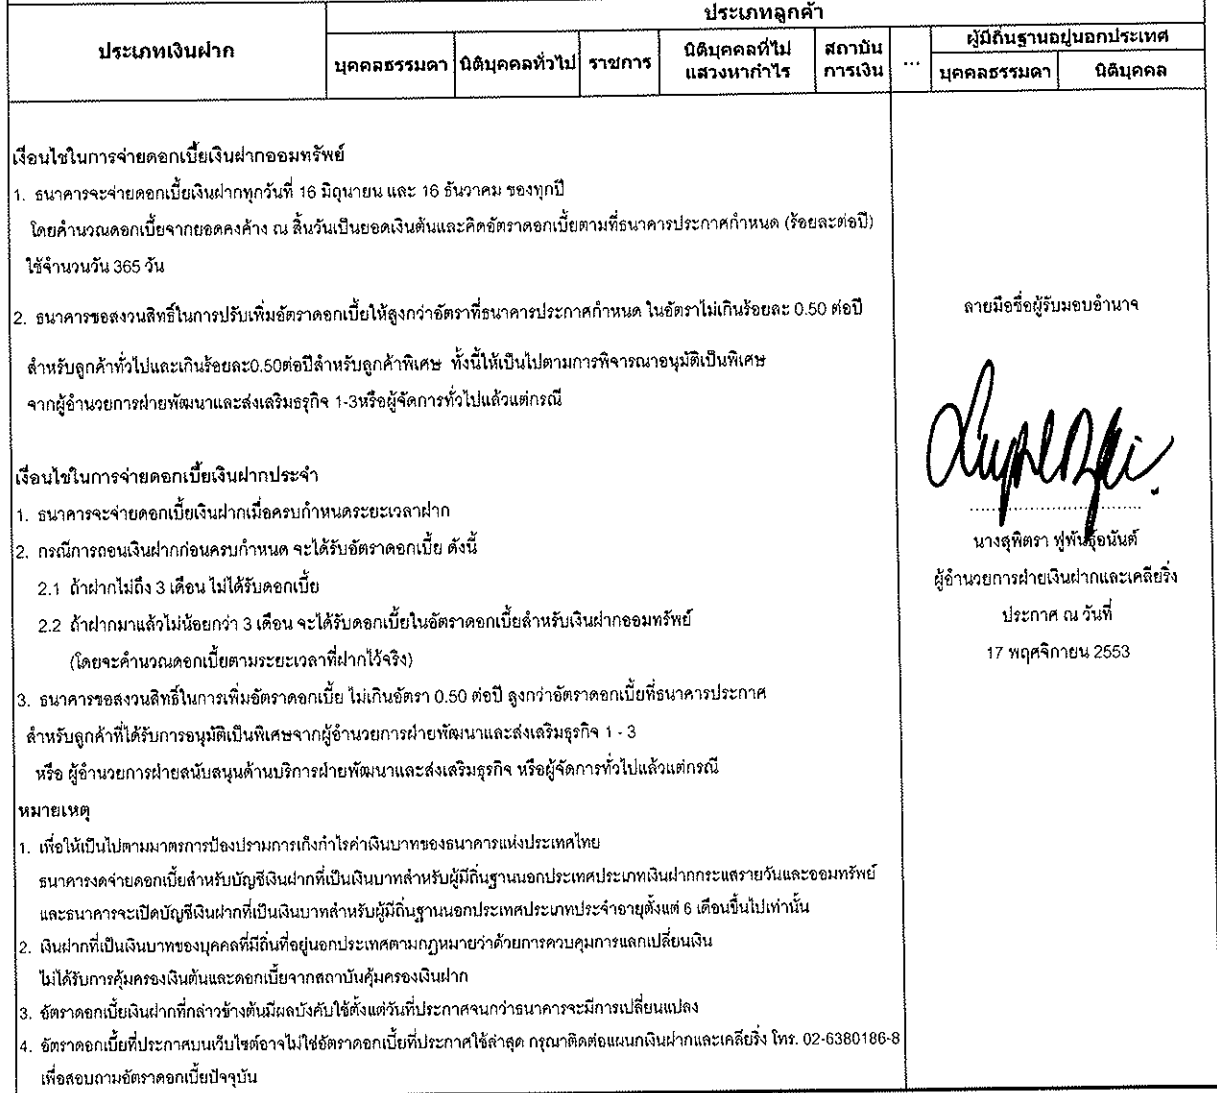 ประเภทเงินฝาก
ประเภทลูกค้า
บุคคลธรรมดา
นิติบุคคลทั่วไป
ราชการ
นิติบุคคลที่ไม่
แสวงหากำไร
สถาบัน
การเงิน
...
ผู้มีถิ่นฐานอยู่นอกประเทศ
บุคคลธรรมดา
นิติบุคคล
เงื่อนไขในการจ่ายดอกเบี้ยเงินฝากออมทรัพย์
1. ธนาคารจะจ่ายดอกเบี้ยเงินฝากทุกวันที่ 16 มิถุนายน และ 16 ธันวาคม ของทุกปี
โดยคำนวณดอกเบี้ยจากยอดคงค้าง ณ สิ้นวันเป็นยอดเงินต้นและคิดอัตราดอกเบี้ยตามที่ธนาคารประกาศกำหนด (ร้อยละต่อปี)
ใช้จำนวนวัน 365 วัน
2. ธนาคารขอสงวนสิทธิ์ในการปรับเพิ่มอัตราดอกเบี้ยให้สูงกว่าอัตราที่ธนาคารประกาศกำหนด ในอัตราไม่เกินร้อยละ 0.50 ต่อปี
สำหรับลูกค้าทั่วไปและเกินร้อยละ0.50ต่อปีสำหรับลูกค้าพิเศษ ทั้งนี้ให้เป็นไปตามการพิจารณาอนุมัติเป็นพิเศษ
จากผู้อำนวยการฝ่ายพัฒนาและส่งเสริมธรุกิจ 1-3หรือผู้จัดการทั่วไปแล้วแต่กรณี
เงื่อนไขในการจ่ายดอกเบี้ยเงินฝากประจำ
1. ธนาคารจะจ่ายดอกเบี้ยเงินฝากเมื่อครบกำหนดระยะเวลาฝาก
2. กรณีการถอนเงินฝากก่อนครบกำหนด จะได้รับอัตราดอกเบี้ย ดังนี้
2.1 ถ้าฝากไม่ถึง 3 เดือน ไม่ได้รับดอกเบี้ย
2.2 ถ้าฝากมาแล้วไม่น้อยกว่า 3 เดือน จะได้รับดอกเบี้ยในอัตราดอกเบี้ยสำหรับเงินฝากออมทรัพย์
(โดยจะคำนวณดอกเบี้ยตามระยะเวลาที่ฝากไว้จริง)
3. ธนาคารขอสงวนสิทธิ์ในการเพิ่มอัตราดอกเบี้ย ไม่เกินอัตรา 0.50 ต่อปี สูงกว่าอัตราดอกเบี้ยที่ธนาคารประกาศ
สำหรับลูกค้าที่ได้รับการอนุมัติเป็นพิเศษจากผู้อำนวยการฝ่ายพัฒนาและส่งเสริมธุรกิจ 1 - 3
หรือ ผู้อำนวยการฝ่ายสนับสนุนด้านบริการฝ่ายพัฒนาและส่งเสริมธุรกิจ หรือผู้จัดการทั่วไปแล้วแต่กรณี
หมายเหตุ
1. เพื่อให้เป็นไปตามมาตรการป้องปรามการเก็งกำไรค่าเงินบาทของธนาคารแห่งประเทศไทย
ธนาคารงดจ่ายดอกเบี้ยสำหรับบัญชีเงินฝากที่เป็นเงินบาทสำหรับผู้มีถิ่นฐานนอกประเทศประเภทเงินฝากกระแสรายวันและออมทรัพย์
และธนาคารจะเปิดบัญชีเงินฝากที่เป็นเงินบาทสำหรับผู้มีถิ่นฐานนอกประเทศประเภทประจำอายุตั้งแต่ 6 เดือนขึ้นไปเท่านั้น
2. เงินฝากที่เป็นเงินบาทของบุคคลที่มีถิ่นที่อยู่นอกประเทศตามกฎหมายว่าด้วยการควบคุมการแลกเปลี่ยนเงิน
ไม่ได้รับการคุ้มครองเงินต้นและดอกเบี้ยจากสถาบันคุ้มครองเงินฝาก
3. อัตราดอกเบี้ยเงินฝากที่กล่าวข้างต้นมีผลบังคับใช้ตั้งแต่วันที่ประกาศจนกว่าธนาคารจะมีการเปลี่ยนแปลง
4. อัตราดอกเบี้ยที่ประกาศบนเว็บไซต์อาจไม่ใช่อัตราดอกเบี้ยที่ประกาศใช้ล่าสุด กรุณาติดต่อแผนกเงินฝากและเคลียริ่ง โทร. 02-6380186-8
เพื่อสอบถามอัตราดอกเบี้ยปัจจุบัน
ลายมือชื่อผู้รับมอบอำนาจ
นางสุพิตรา ฟูพันธุ์อนันต์
ผู้อำนวยการฝ่ายเงินฝากและเคลียริ่ง
ประกาศ ณ วันที่
17 พฤศจิกายน 2553